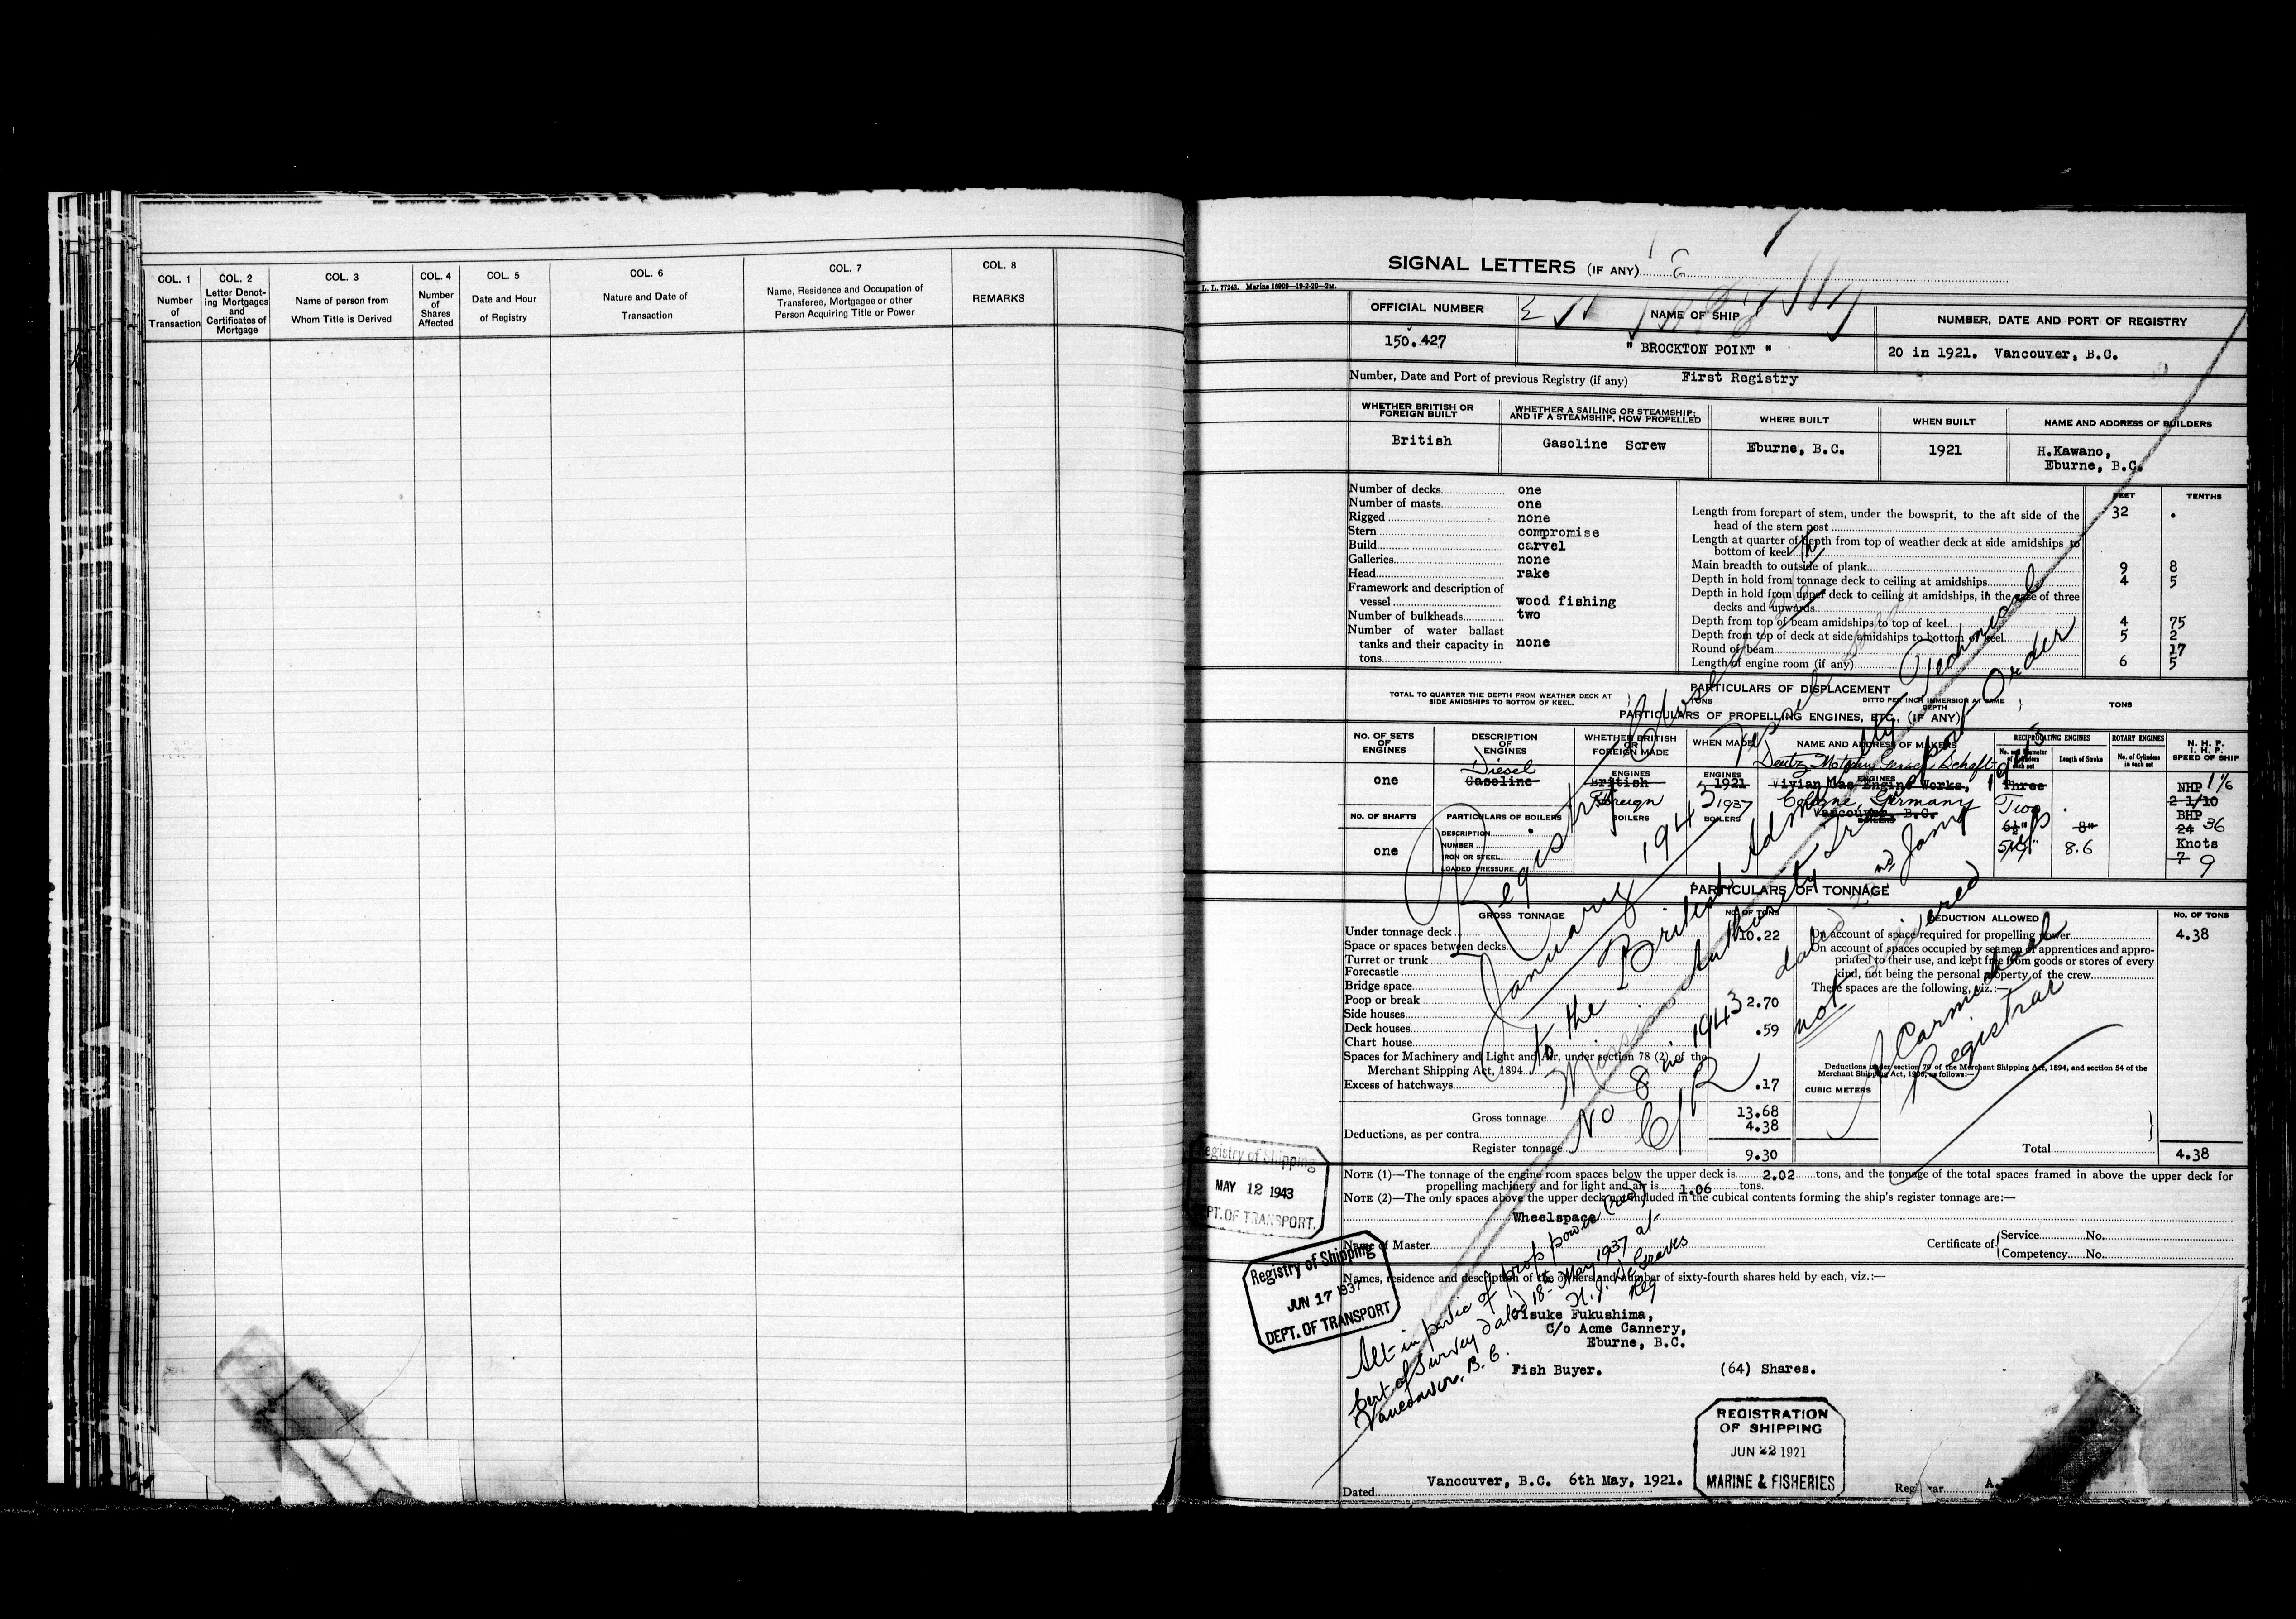 COL. 1
Number
of
Transaction
COL. 2
Letter Denot-
ing Mortgages
and
Certificates of
Mortgage
COL. 3
Name of person from
Whom Title is Derived
COL. 4
Number
of
Shares
Affected
COL. 5
Date and Hour
of Registry
COL. 6
Nature and Date of
Transaction
COL. 7
Name, Residence and Occupation of
Transferee, Mortgagee or other
Person Acquiring Title or Power
COL. 8
REMARKS
SIGNAL LETTERS (IF ANY)
L. L. 77243. Marine 16909—19-2-20—2M.
OFFICIAL NUMBER
NAME OF SHIP
NUMBER, DATE AND PORT OF REGISTRY
150.427
" BROCKTON POINT "
20 in 1921. Vancouver, B.C.
Number, Date and Port of previous Registry (if any) First Registry
WHETHER BRITISH OR
FOREIGN BUILT
WHETHER A SAILING OR STEAMSHIP;
AND IF A STEAMSHIP, HOW PROPELLED
WHERE BUILT
WHEN BUILT
NAME AND ADDRESS OF BUILDERS
British
Gasoline Screw
Eburne, B.C.
1921
H.Kawano,
Eburne, B.C.
Number of decks one
Number of masts one
Rigged none
Stern compromise
Build carvel
Galleries none
Head rake
Framework and description of
vessel wood fishing
Number of bulkheads two
Number of water ballast
tanks and their capacity in none
tons
FEET TENTHS
Length from forepart of stem, under the bowsprit, to the aft side of the 32 .
head of the stern post
Length at quarter of depth from top of weather deck at side amidships to
bottom of keel
Main breadth to outside of plank 9 8
Depth in hold from tonnage deck to ceiling at amidships 4 5
Depth in hold from upper deck to ceiling at amidships, in the case of three
decks and upwards
Depth from top of beam amidships to top of keel 4 75
Depth from top of deck at side amidships to bottom of keel 5 2
Round of beam 17
Length of engine room (if any) 6 5
PARTICULARS OF DISPLACEMENT
TOTAL TO QUARTER THE DEPTH FROM WEATHER DECK AT
SIDE AMIDSHIPS TO BOTTOM OF KEEL.
TONS
DITTO PER INCH IMMERSION AT SAME
DEPTH
TONS
PARTICULARS OF PROPELLING ENGINES, ETC., (IF ANY)
NO. OF SETS
OF
ENGINES
DESCRIPTION
OF
ENGINES
WHETHER BRITISH
OR
FOREIGN MADE
WHEN MADE
NAME AND ADDRESS OF MAKERS
RECIPROCATING ENGINES
No. and Diameter
of Cylinders
in each set
Length of Stroke
ROTARY ENGINES
No. of Cylinders
in each set
N. H. P.
I. H. P.
SPEED OF SHIP
one
Diesel
Gasoline
ENGINES
British
Foreign
BOILERS
ENGINES
1921
1937
BOILERS
ENGINES
Vivian Gas Engine Works,
Cologne, Germany
Vancouver, B.C.
BOILERS
Three
Two
6½"
8"
8.6
NHP 1 1/6
2 1/10
BHP
24 36
Knots
7 9
NO. OF SHAFTS
one
PARTICULARS OF BOILERS
DESCRIPTION
NUMBER
IRON OR STEEL
LOADED PRESSURE
PARTICULARS OF TONNAGE
GROSS TONNAGE
NO. OF TONS
Under tonnage deck 10.22
Space or spaces between decks
Turret or trunk
Forecastle
Bridge space
Poop or break 2.70
Side houses
Deck houses .59
Chart house
Spaces for Machinery and Light and Air, under section 78 (2) of the
Merchant Shipping Act, 1894
Excess of hatchways .17
Gross tonnage 13.68
Deductions, as per contra 4.38
Register tonnage 9.30
DEDUCTION ALLOWED
NO. OF TONS
On account of space required for propelling power 4.38
On account of spaces occupied by seamen or apprentices and appro-
priated to their use, and kept free from goods or stores of every
kind, not being the personal property of the crew
These spaces are the following, viz.:—
Deductions under section 79 of the Merchant Shipping Act, 1894, and section 54 of the
Merchant Shipping Act, 1906, as follows:—
CUBIC METERS
Total 4.38
Registry Closed
January 1943
Vessel
to the British Admiralty Technical
Mission Authority Transport Order
No 8 in 1943 dated 2nd Jany 1943
not
C/R
A Carmichael
Registrar
NOTE (1)—The tonnage of the engine room spaces below the upper deck is 2.02 tons, and the tonnage of the total spaces framed in above the upper deck for
propelling machinery and for light and air is 1.06 tons.
NOTE (2)—The only spaces above the upper deck not included in the cubical contents forming the ship's register tonnage are:—
Wheelspace
Name of Master
Certificate of
Service No.
Competency No.
Names, residence and description of the owners and number of sixty-fourth shares held by each, viz.:—
Fukushima,
C/o Acme Cannery,
Eburne, B.C.
Fish Buyer. (64) Shares.
Alt in partic of prop power (red)
Cert of Survey dated 18th May 1937 at
Vancouver, B.C.
Reg
Registry of Shipping
MAY 12 1943
DEPT. OF TRANSPORT.
Registry of Shipping
JUN 17 1937
DEPT. OF TRANSPORT
REGISTRATION
OF SHIPPING
JUN 22 1921
MARINE & FISHERIES
Dated Vancouver, B.C. 6th May, 1921.
Registrar